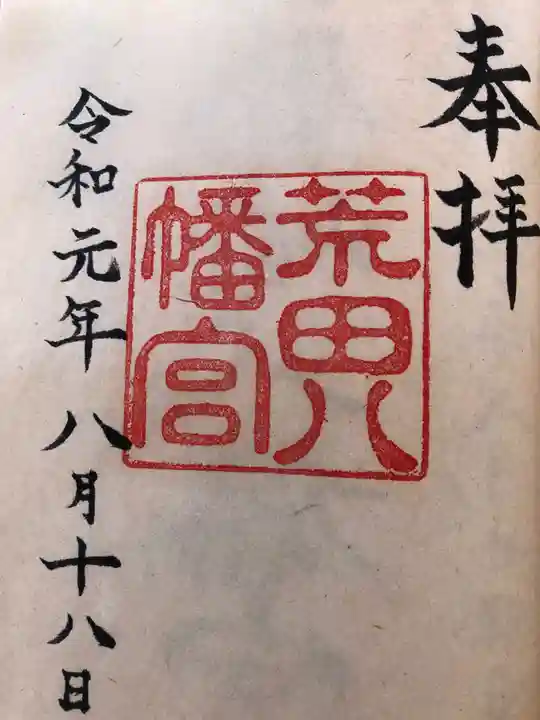 奉拝
荒田八
幡宮
令和元年八月十八日